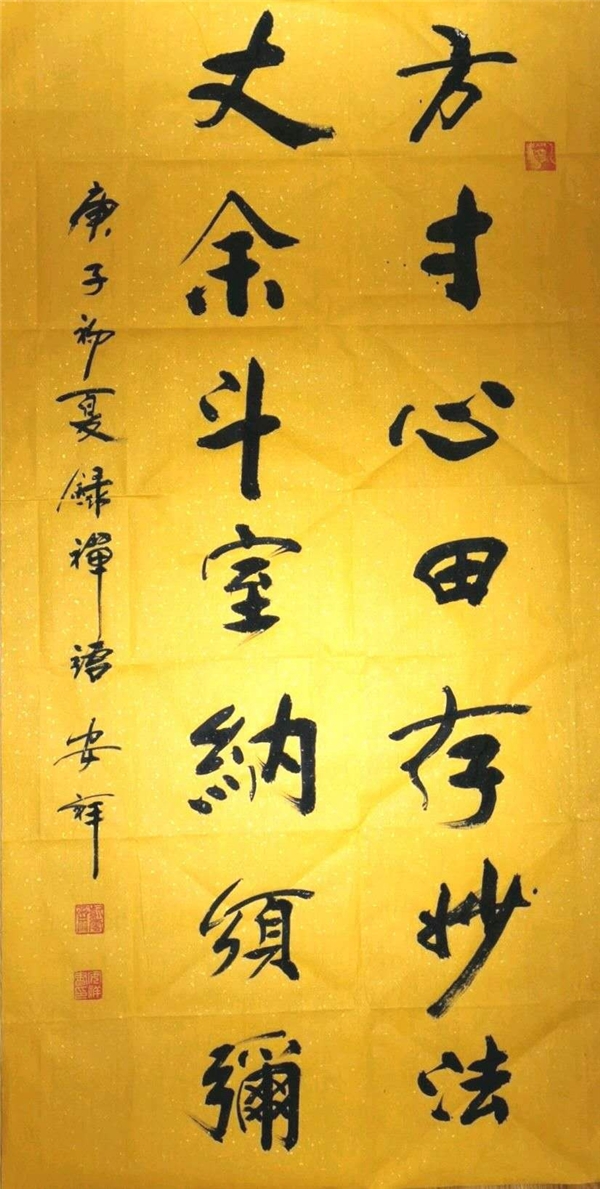 方寸心田存妙法
丈余斗室納須彌
庚子初夏録禪語 安祥